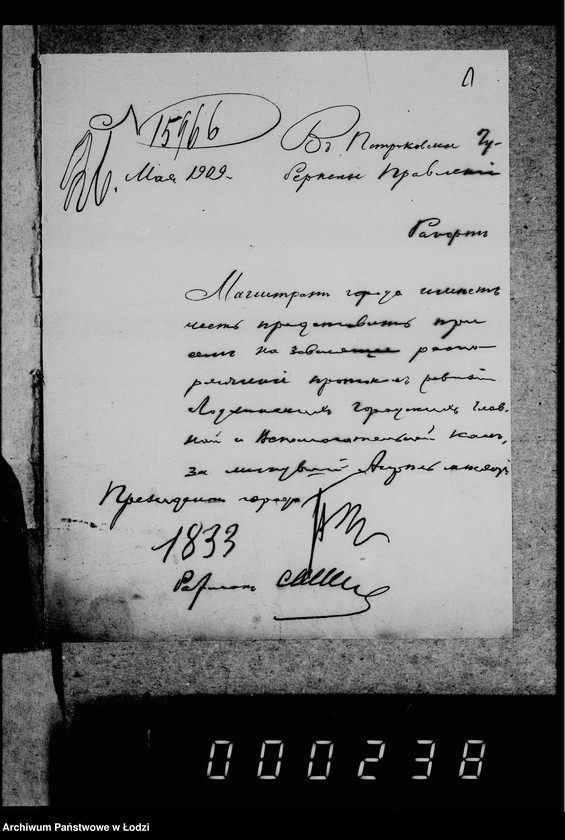 N 15966
26. Мая 1909.
Въ Петроковское Гу-
бернское Правленіе
Рапортъ
Магистратъ города имѣетъ
честь представить при
семъ на зависящее распо-
ряженіе протоколъ ревизіи
Лодзинскихъ городскихъ глав-
ной и вспомогательной кассъ,
за минувшій Апрѣль мѣсяцъ
Президентъ города
1833
000238
Archiwum Państwowe w Łodzi